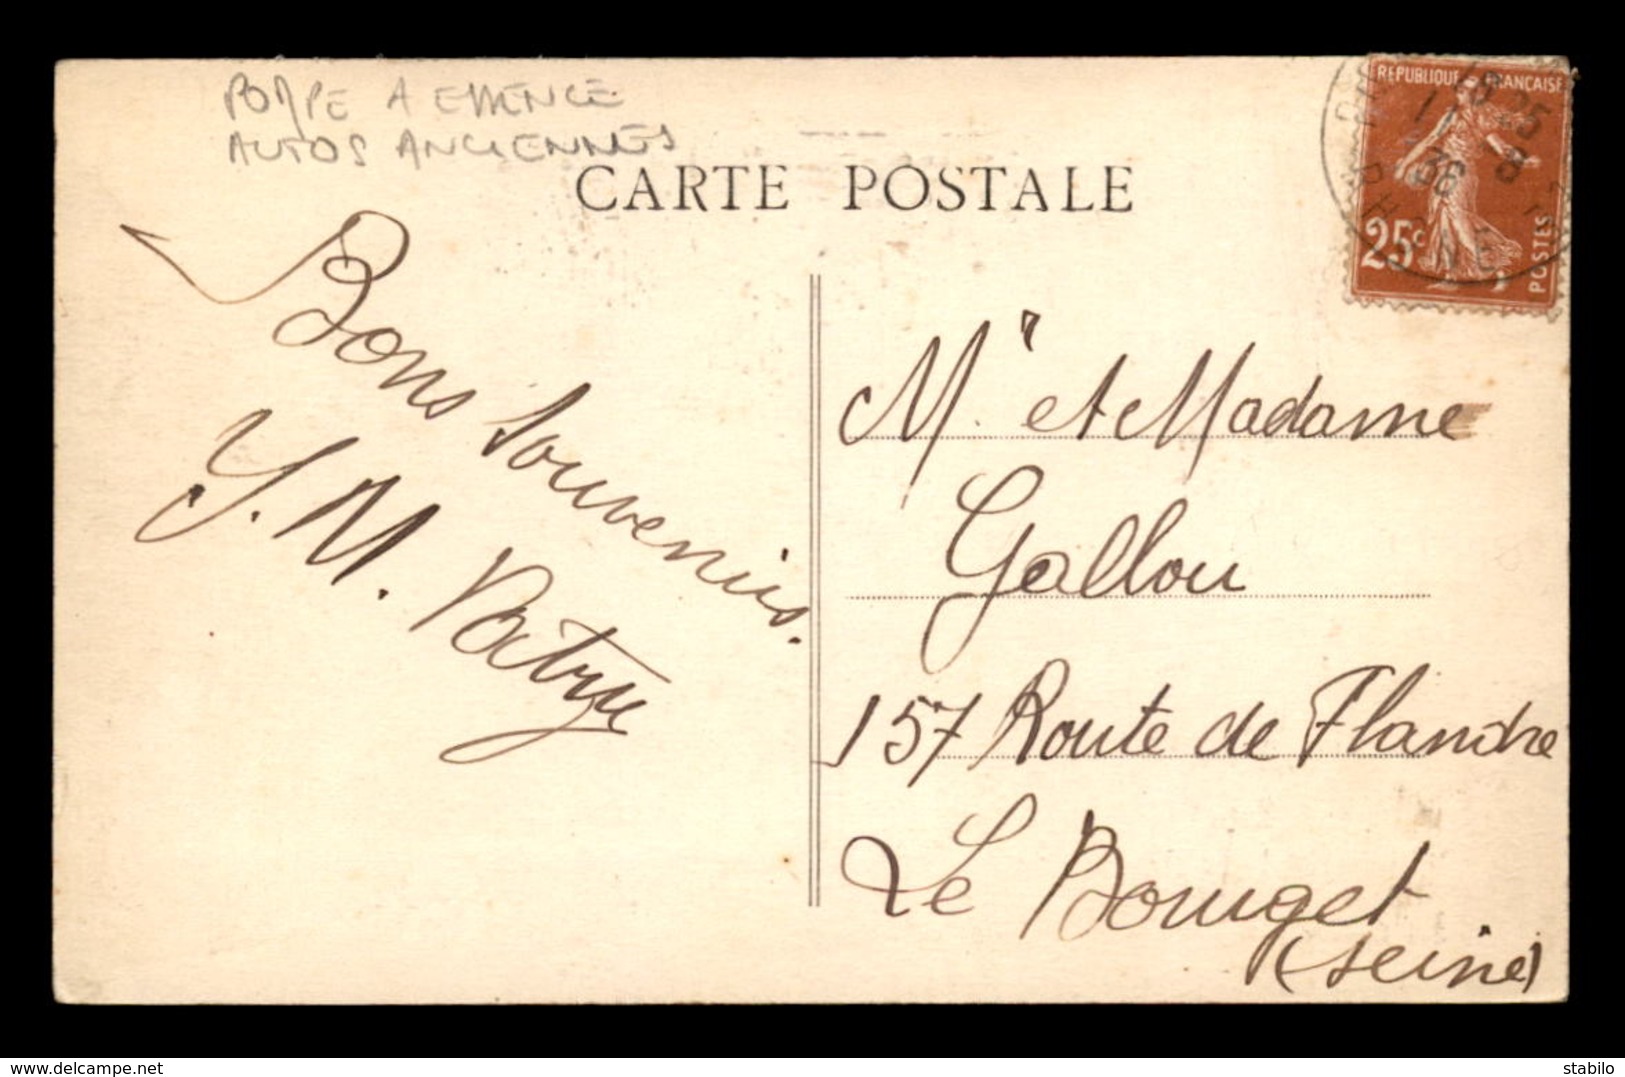 POMPE A ESSENCE
AUTOS ANCIENNES
CARTE POSTALE
REPUBLIQUE FRANÇAISE
25c
POSTES
36
RHONE
Bons Souvenirs.
Y. M. Vatrye
M. et Madame
Gallou
157 Route de Flandre
Le Bourget
(Seine)
delcampe.net
stabilo